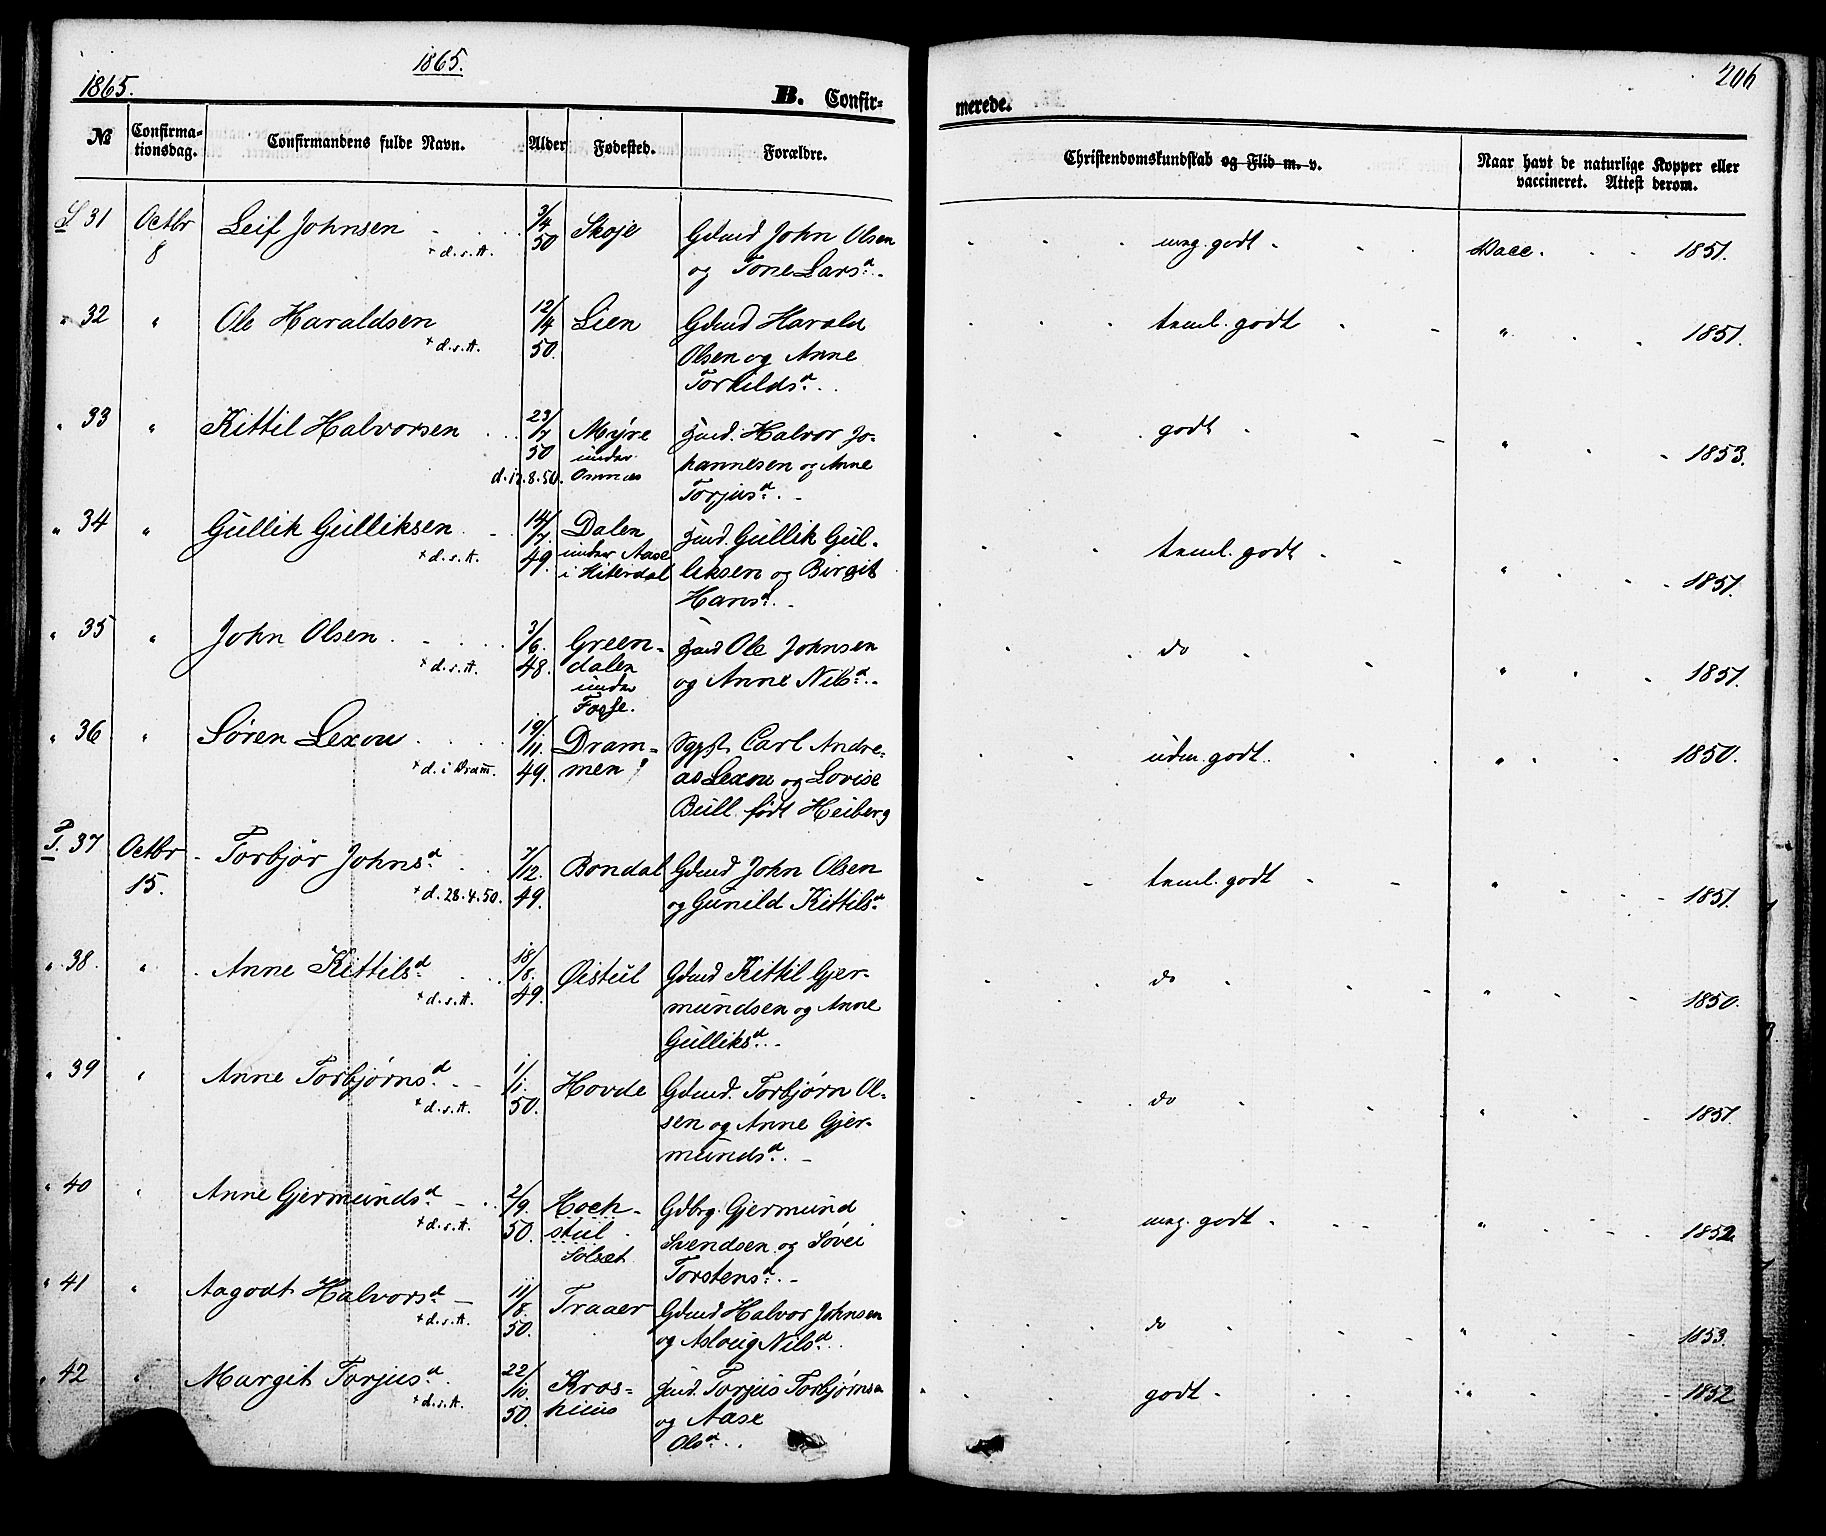 1865.
1865.
B. Confir-
№
Confirma-
tionsdag.
Confirmandens fulde Navn.
Alder
Fødested.
Forældre.
31 Octbr 8
Leif Johnsen
+ d.s.A.
3/4 50
Skoje
Gdmd John Olsen
og Tone Larsd.
" 32 "
Ole Haraldsen
+ d.s.A.
12/4 50.
Lien
Gdmd Harald
Olsen og Anne
Torkildsd.
" 33 "
Kittil Halvorsen
23/7 50
d. 12.8.50.
Myre
under
Omnæs
Hmd. Halvor Jo-
hannesen og Anne
Torjusd.
" 34 "
Gullik Gulliksen
+ d.s.A.
14/7. 49.
Dalen
under Aase
i Hiterdal
Hmd. Gullik Gul-
liksen og Birgit
Hansd.
" 35 "
John Olsen
+ d.s.A.
3/6. 48.
Green-
dalen
under
Fosse.
Hmd Ole Johnsen
og Anne Nilsd.
" 36 "
Søren Lexow
+ d. i Dram.
19/11. 49.
Dram-
men
Carl Andre-
as Lexow og Lovise
Bull født Heiberg
37 Octbr 15.
Torbjør Johnsd.
+ d. 28.4.50.
7/12. 49.
Bondal
Gdmd John Olsen
og Gunild Kittilsd.
" 38. "
Anne Kittilsd.
+ d.s.A.
18/8. 49.
Øistul
Gdmd Kittil Gjer-
mundsen og Anne
Gulliksd.
" 39 "
Anne Torbjørnsd.
+ d.s.A.
1/1. 50.
Hovde
Gdmd. Torbjørn Ol-
sen og Anne Gjer-
mundsd.
" 40 "
Anne Gjermundsd.
+ d.s.A.
2/9. 50.
stul
Solset
Gdbrg. Gjermund
Svendsen og Søvei
Torstensd.
" 41 "
Aagodt Halvorsd.
+ d.s.A.
11/8. 50.
Traaer
Gdmd Halvor Johnsen
og Aslaug Nilsd.
" 42 "
Margit Torjusd.
+ d.s.A.
22/10. 50.
Kros-
huus
Hmd. Torjus Torbjørnsen
og Aase
Olsd.
206
merede.
Christendomskundskab og Flid m. v.
Naar havt de naturlige Kopper eller
vaccineret. Attest derom.
mg. godt Vacc. 1851.
teml. godt " 1851.
godt " 1853.
teml. godt " 1851.
do " 1851.
udm. godt. " 1850.
teml. godt " 1851.
do " 1850.
do " 1851.
mg. godt " 1852.
do " 1853.
godt " 1852